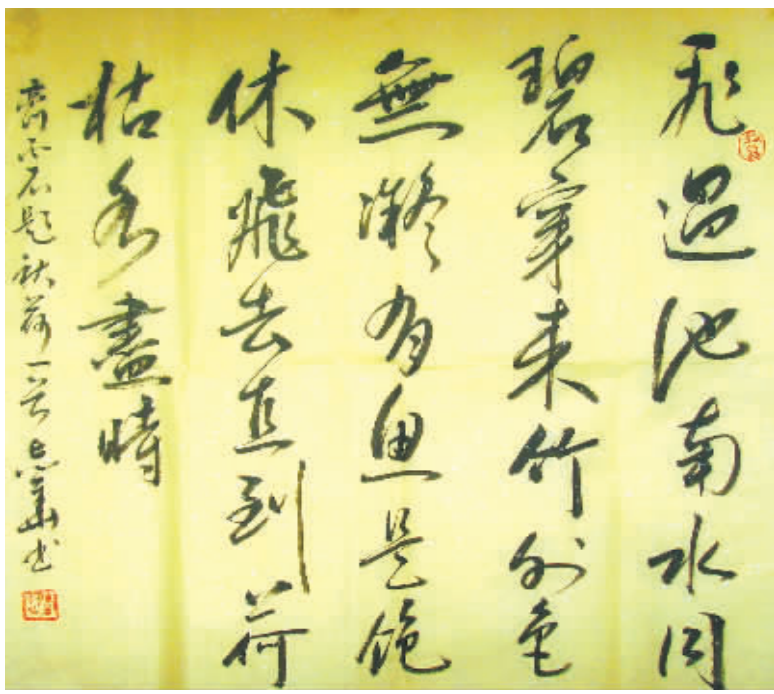 飛過池南水同
碧穿来竹外色
無凝有魚是飽
休飛去直到荷
枯香盡時
齊白石題秋荷一首 書